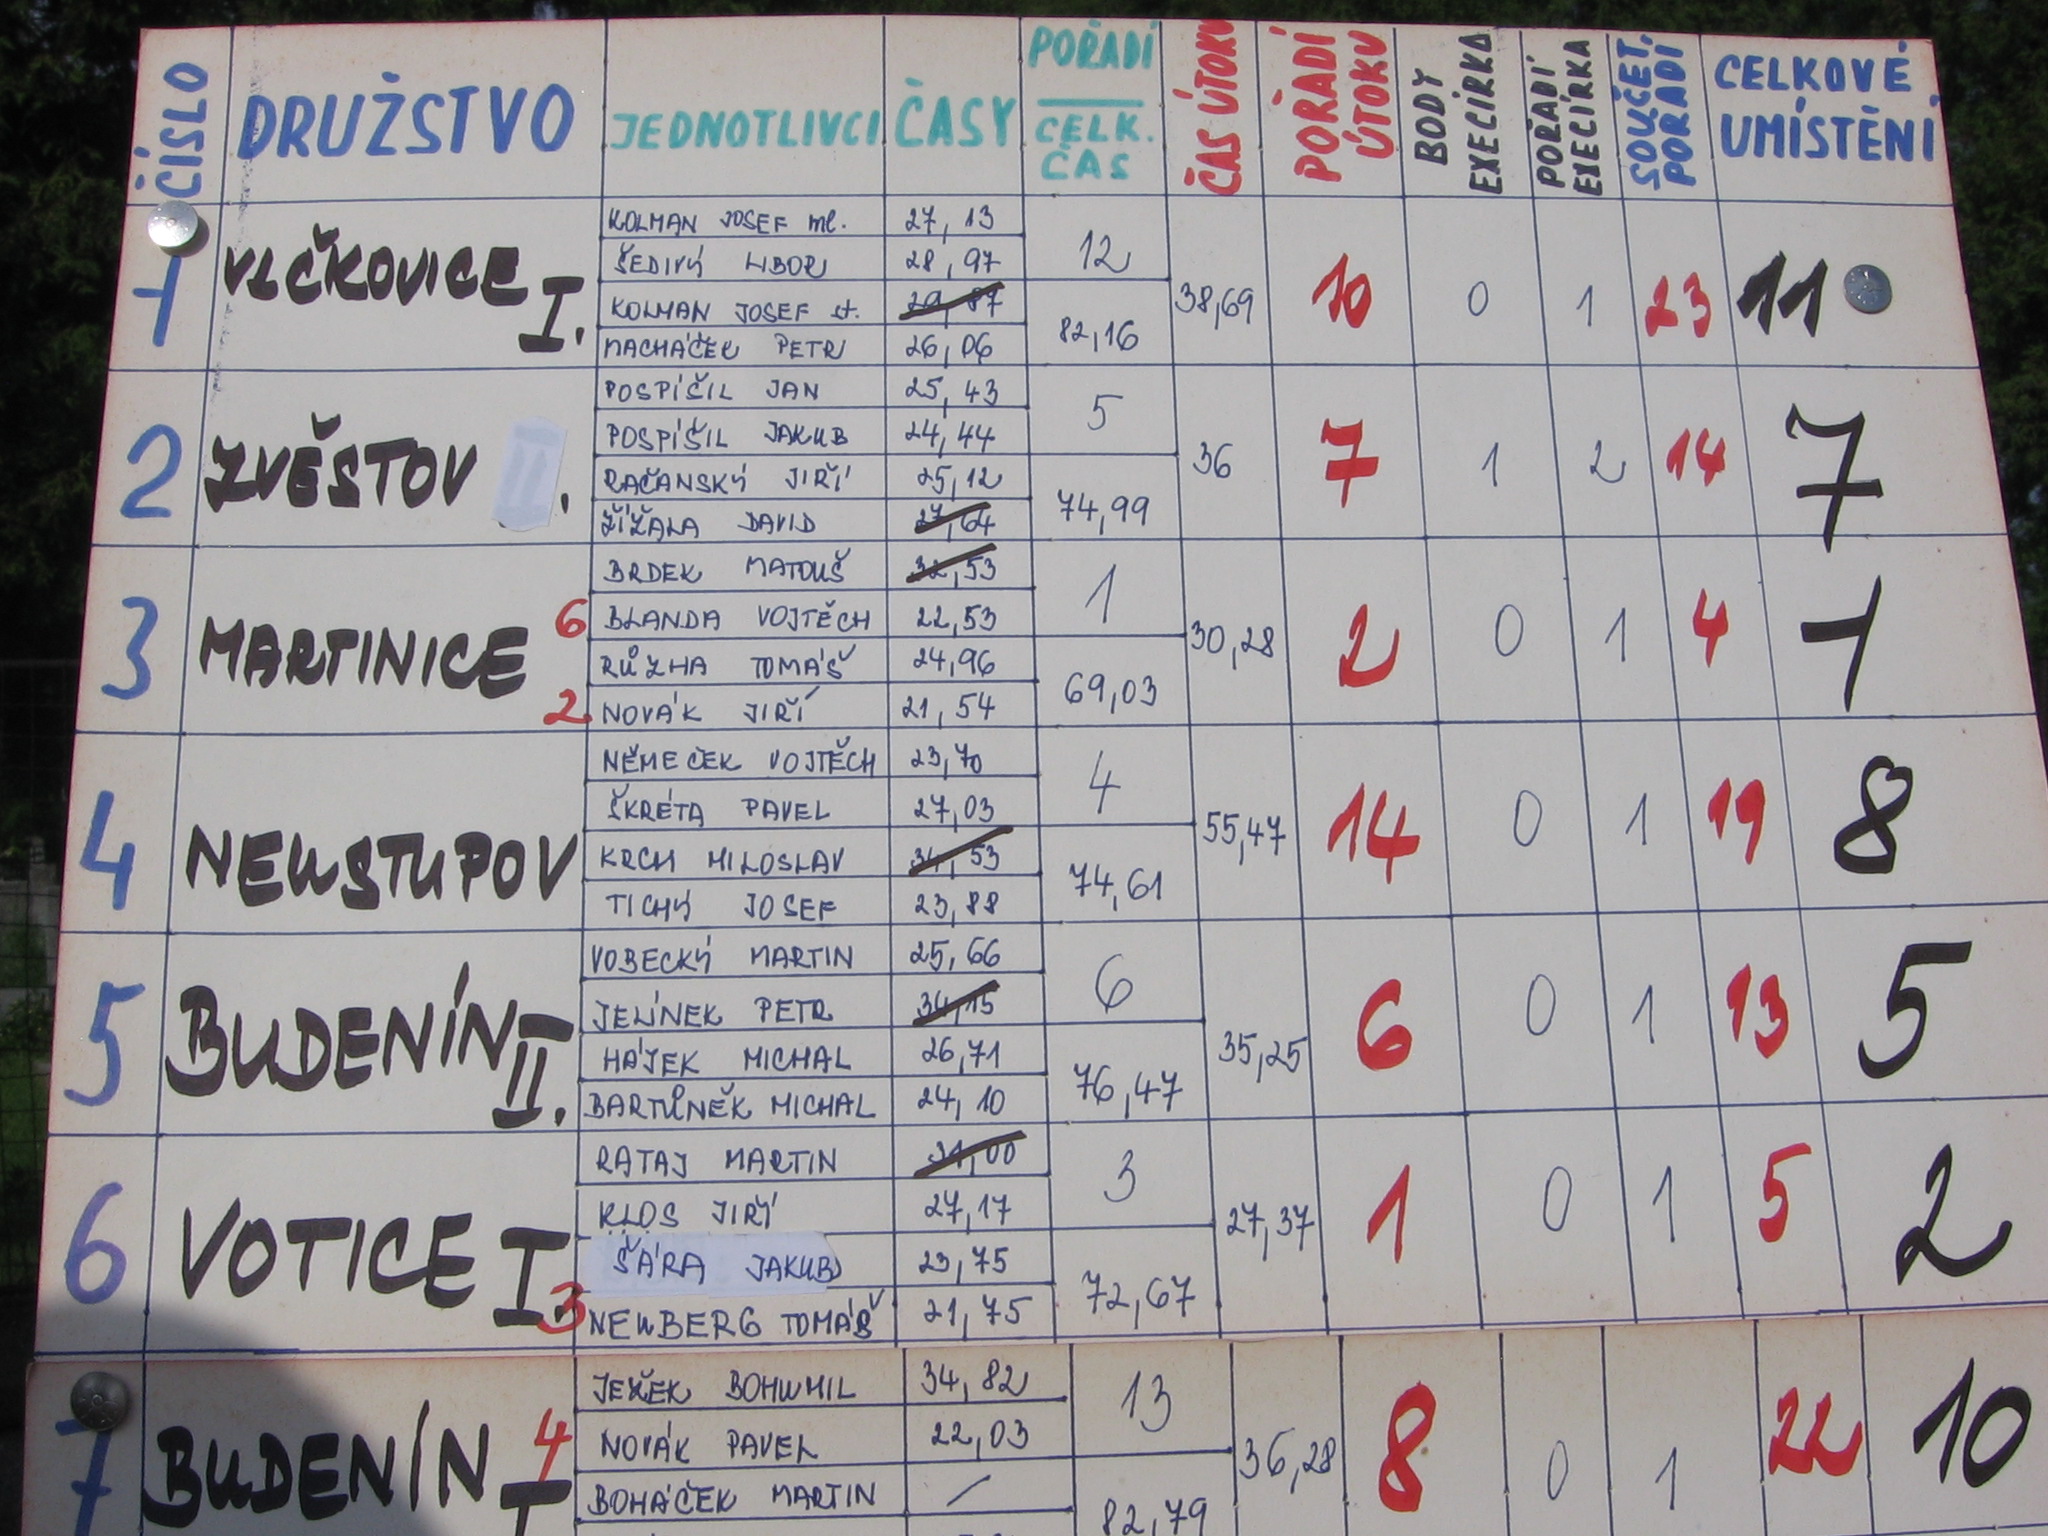 ČÍSLO DRUŽSTVO JEDNOTLIVCI ČASY POŘADÍ CELK. ČAS ČAS ÚTOKU POŘADÍ ÚTOKU BODY EXECÍRKA POŘADÍ EXECÍRKA SOUČET. POŘADÍ CELKOVÉ UMÍSTĚNÍ
1 VLČKOVICE I. 12 82,16 38,69 10 0 1 23 11
KOLMAN JOSEF ml. 27,13
ŠEDIVÝ LIBOR 28,97
KOLMAN JOSEF st. 29,87
MACHÁČEK PETR 26,06
2 ZVĚSTOV . 5 74,99 36 7 1 2 14 7
POSPÍŠIL JAN 25,43
POSPÍŠIL JAKUB 24,44
RAČANSKÝ JIŘÍ 25,12
ŽÍŽALA DAVID 27,64
3 MARTINICE 1 69,03 30,28 2 0 1 4 1
BRDEK MATOUŠ 32,53
6 BLANDA VOJTĚCH 22,53
RŮZHA TOMÁŠ 24,96
2 NOVÁK JIŘÍ 21,54
4 NEUSTUPOV 4 74,61 55,47 14 0 1 19 8
NĚMEČEK VOJTĚCH 23,70
ŠKRÉTA PAVEL 27,03
KRCH MILOSLAV 34,53
TICHÝ JOSEF 23,88
5 BUDENÍN II. 6 76,47 35,25 6 0 1 13 5
VOBECKÝ MARTIN 25,66
JELÍNEK PETR 34,15
HÁJEK MICHAL 26,71
BARTŮNĚK MICHAL 24,10
6 VOTICE I. 3 72,67 27,37 1 0 1 5 2
RATAJ MARTIN 31,00
KLOS JIŘÍ 27,17
ŠÁRA JAKUB 23,75
3 NEUBERG TOMÁŠ 21,75
7 BUDENÍN I 13 82,79 36,28 8 0 1 22 10
JEŽEK BOHUMIL 34,82
4 NOVÁK PAVEL 22,03
BOHÁČEK MARTIN /